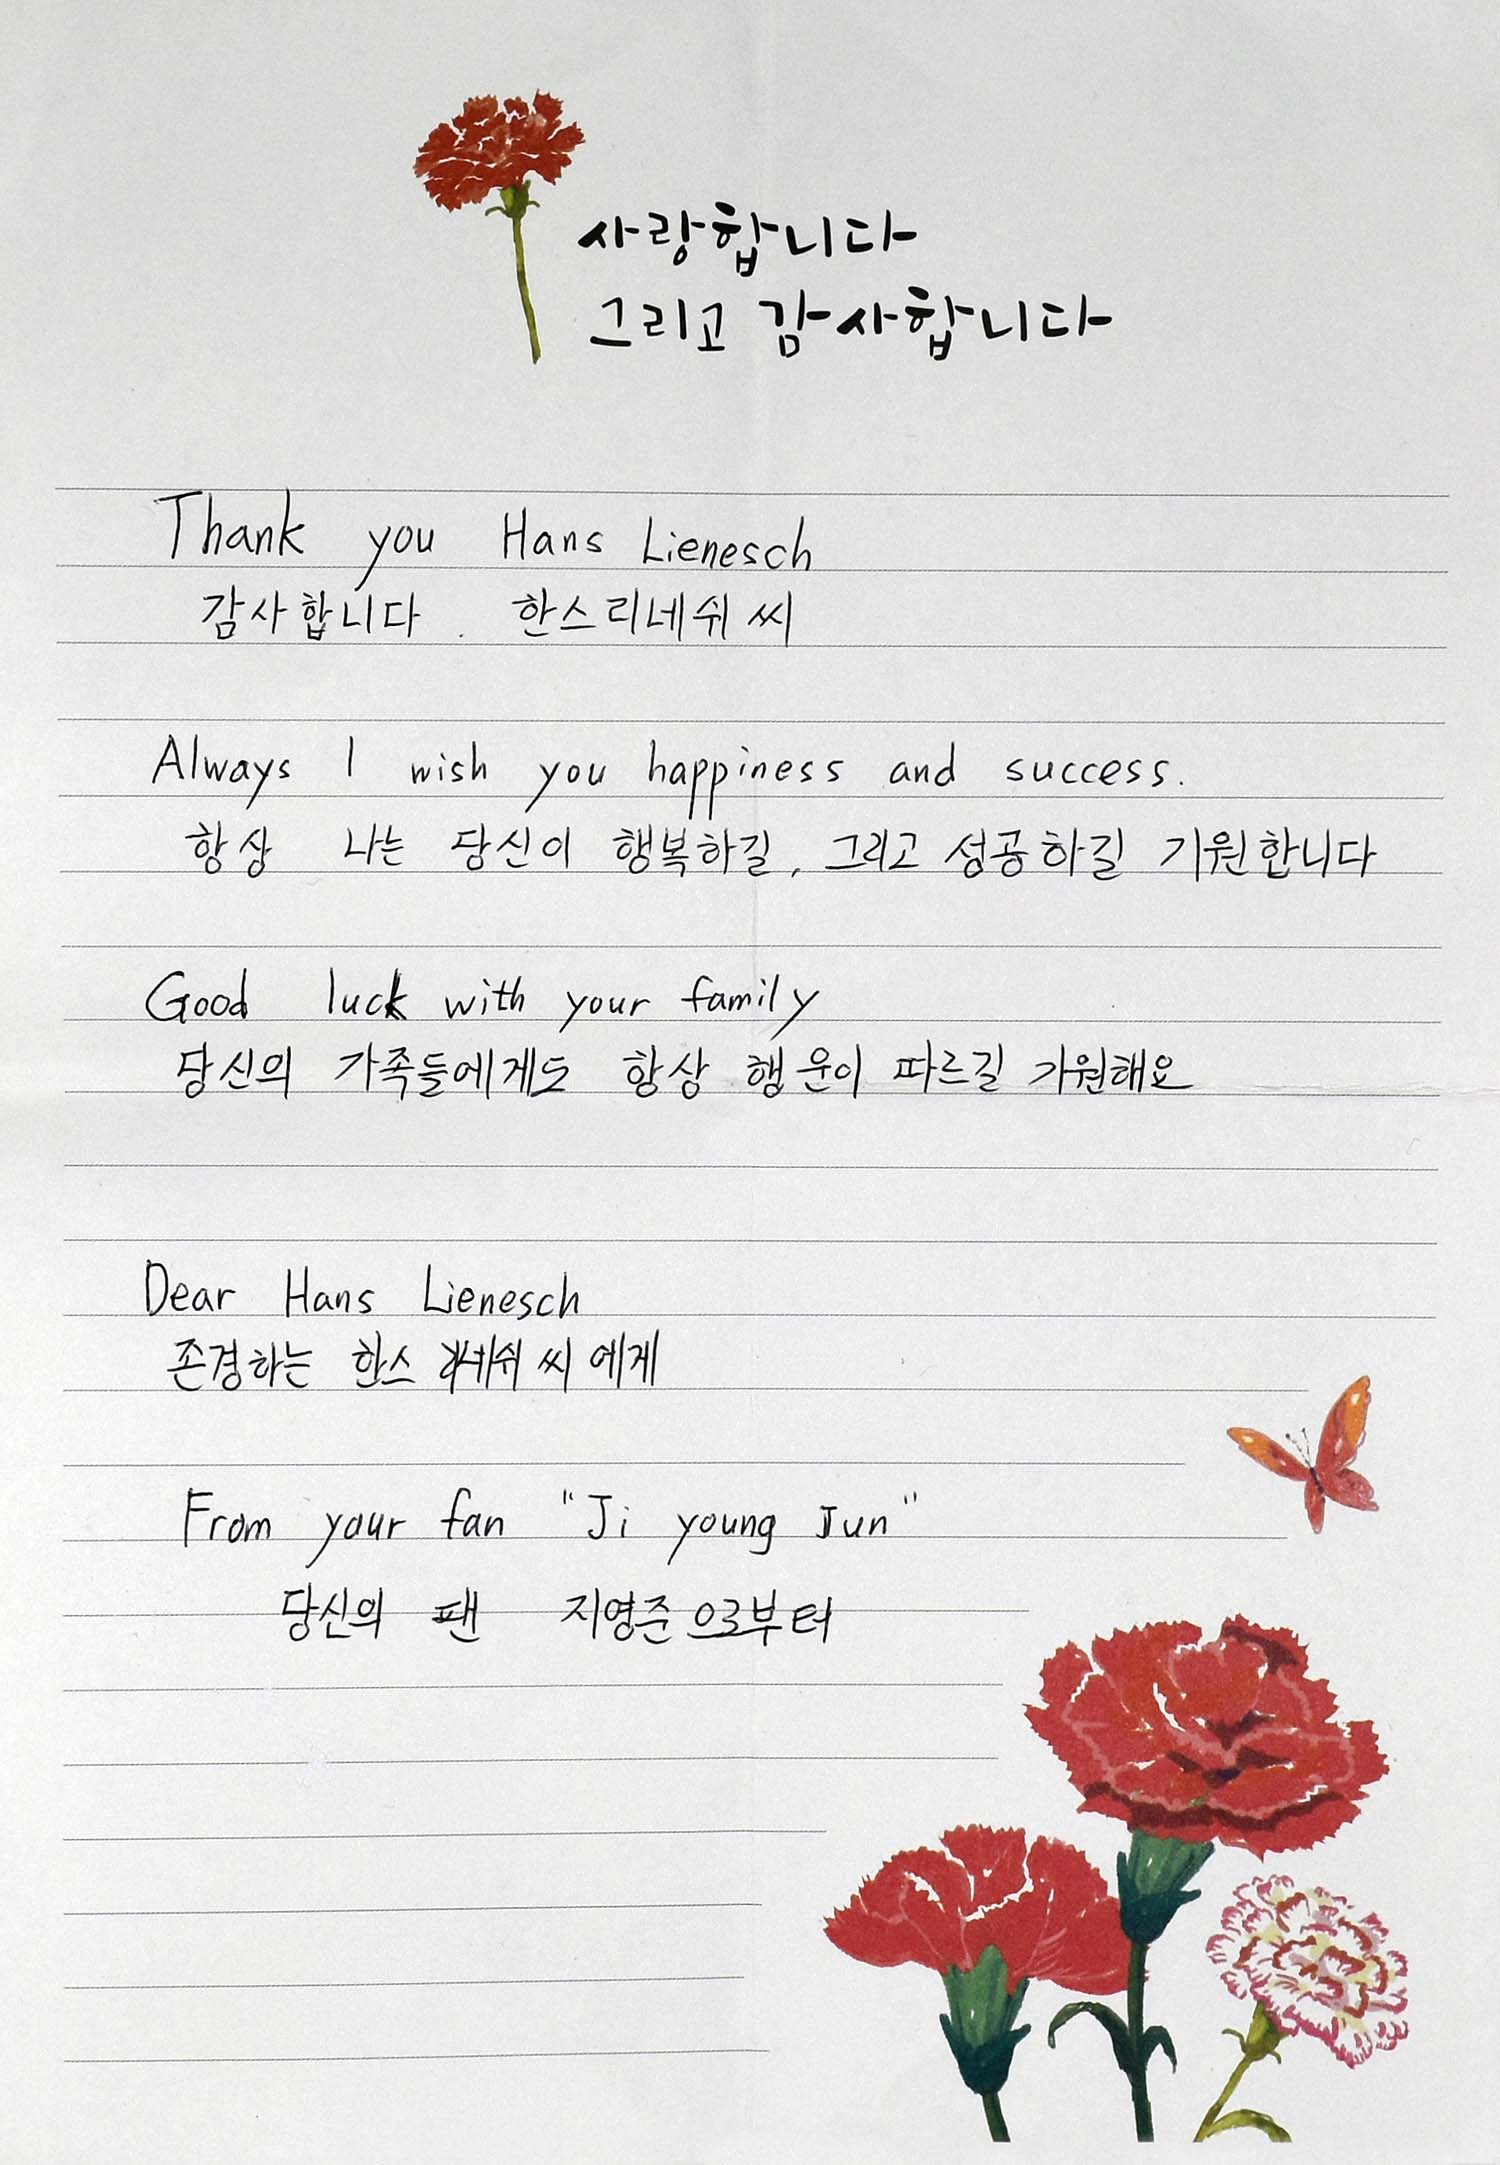 사랑합니다
그리고 감사합니다
Thank you Hans Lienesch
감사합니다. 한스리네쉬 씨
Always I wish you happiness and success.
항상 나는 당신이 행복하길, 그리고 성공하길 기원합니다
Good luck with your family
당신의 가족들에게도 항상 행운이 따르길 기원해요
Dear Hans Lienesch
존경하는 한스 리네쉬 씨 에게
From your fan "Ji young Jun"
당신의 팬 지영준으로부터